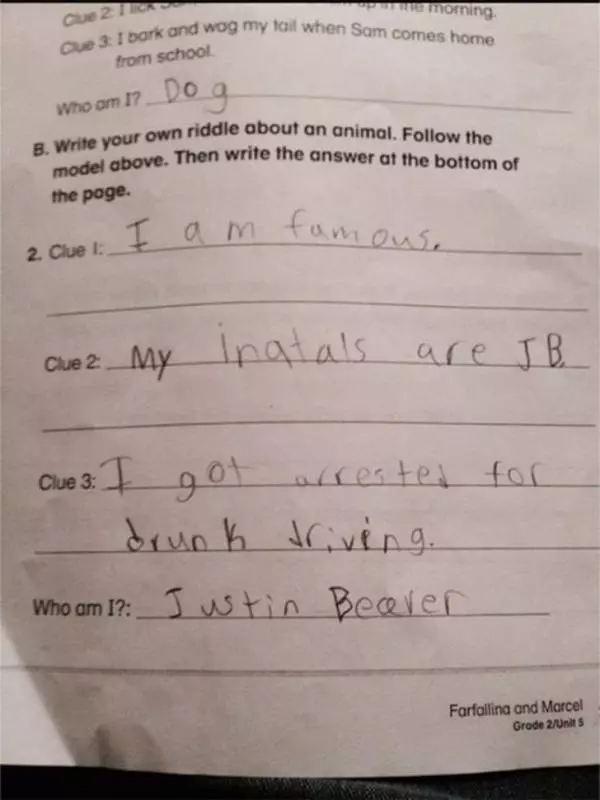 Clue 2: I lick in the morning.
Clue 3: I bark and wag my tail when Sam comes home
from school.
Who am I? Dog
B. Write your own riddle about an animal. Follow the
model above. Then write the answer at the bottom of
the page.
2. Clue 1: I am famous.
Clue 2: My inatals are JB.
Clue 3: I got arrested for
drunk driving.
Who am I?: Justin Beaver
Farfallina and Marcel
Grade 2/Unit 5